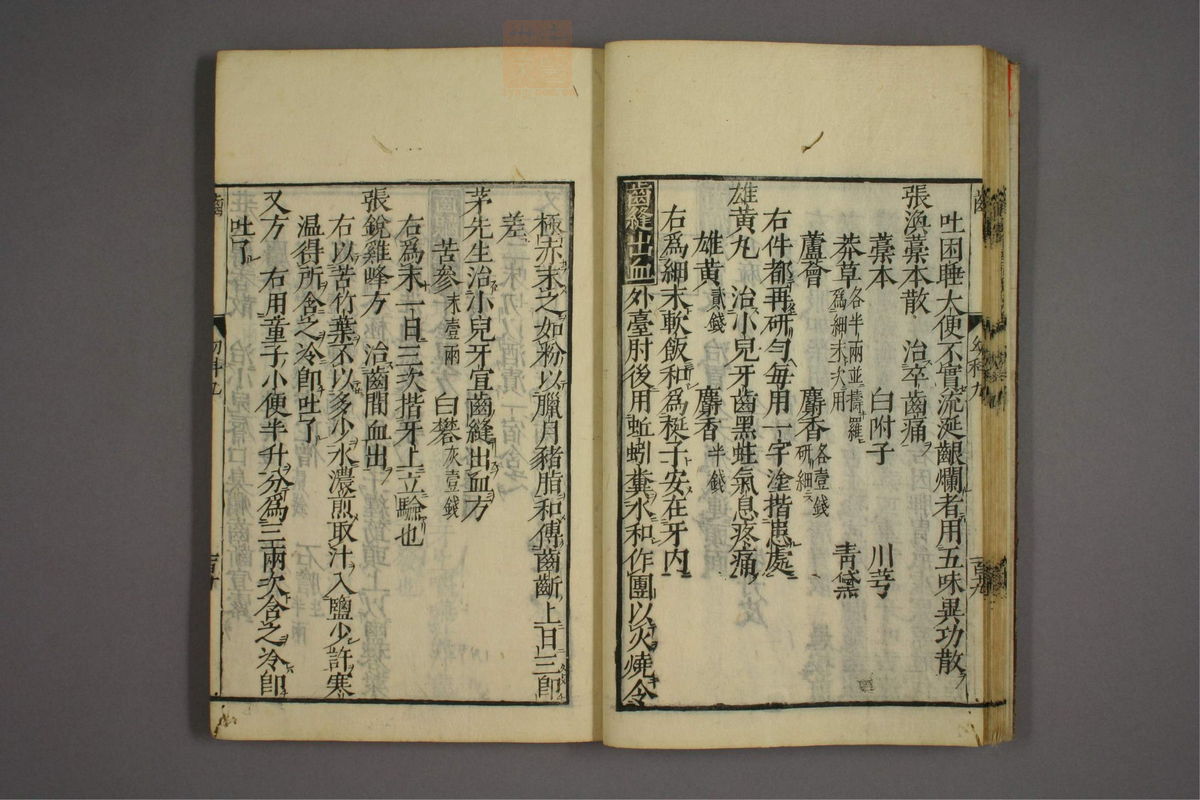 吐困睡大便不實流涎齦爛者用五味異功散
張渙藁本散 治卒齒痛
藁本 白附子 川芎
莽草各半兩並擣羅爲細末次用 青黛
蘆薈 麝香各壹錢研細
右件都再研勻每用一字塗揩患處
雄黃丸 治小兒牙齒黑蛀氣息疼痛
雄黃貳錢 麝香半錢
右爲細末軟飯和爲梃子安在牙內
齒縫出血 外臺肘後用蚯蚓糞水和作團以火燒令
極赤末之如粉以臘月豬脂和傅齒齗上日三即
差
茅先生治小兒牙宣齒縫出血方
苦參末壹兩 白礬灰壹錢
右爲末一日三次揩牙上立驗也
張銳雞峰方 治齒間血出
右以苦竹葉不以多少水濃煎取汁入鹽少許寒
溫得所含之冷即吐了
又方 右用童子小便半升分爲三兩次含之冷即
吐了